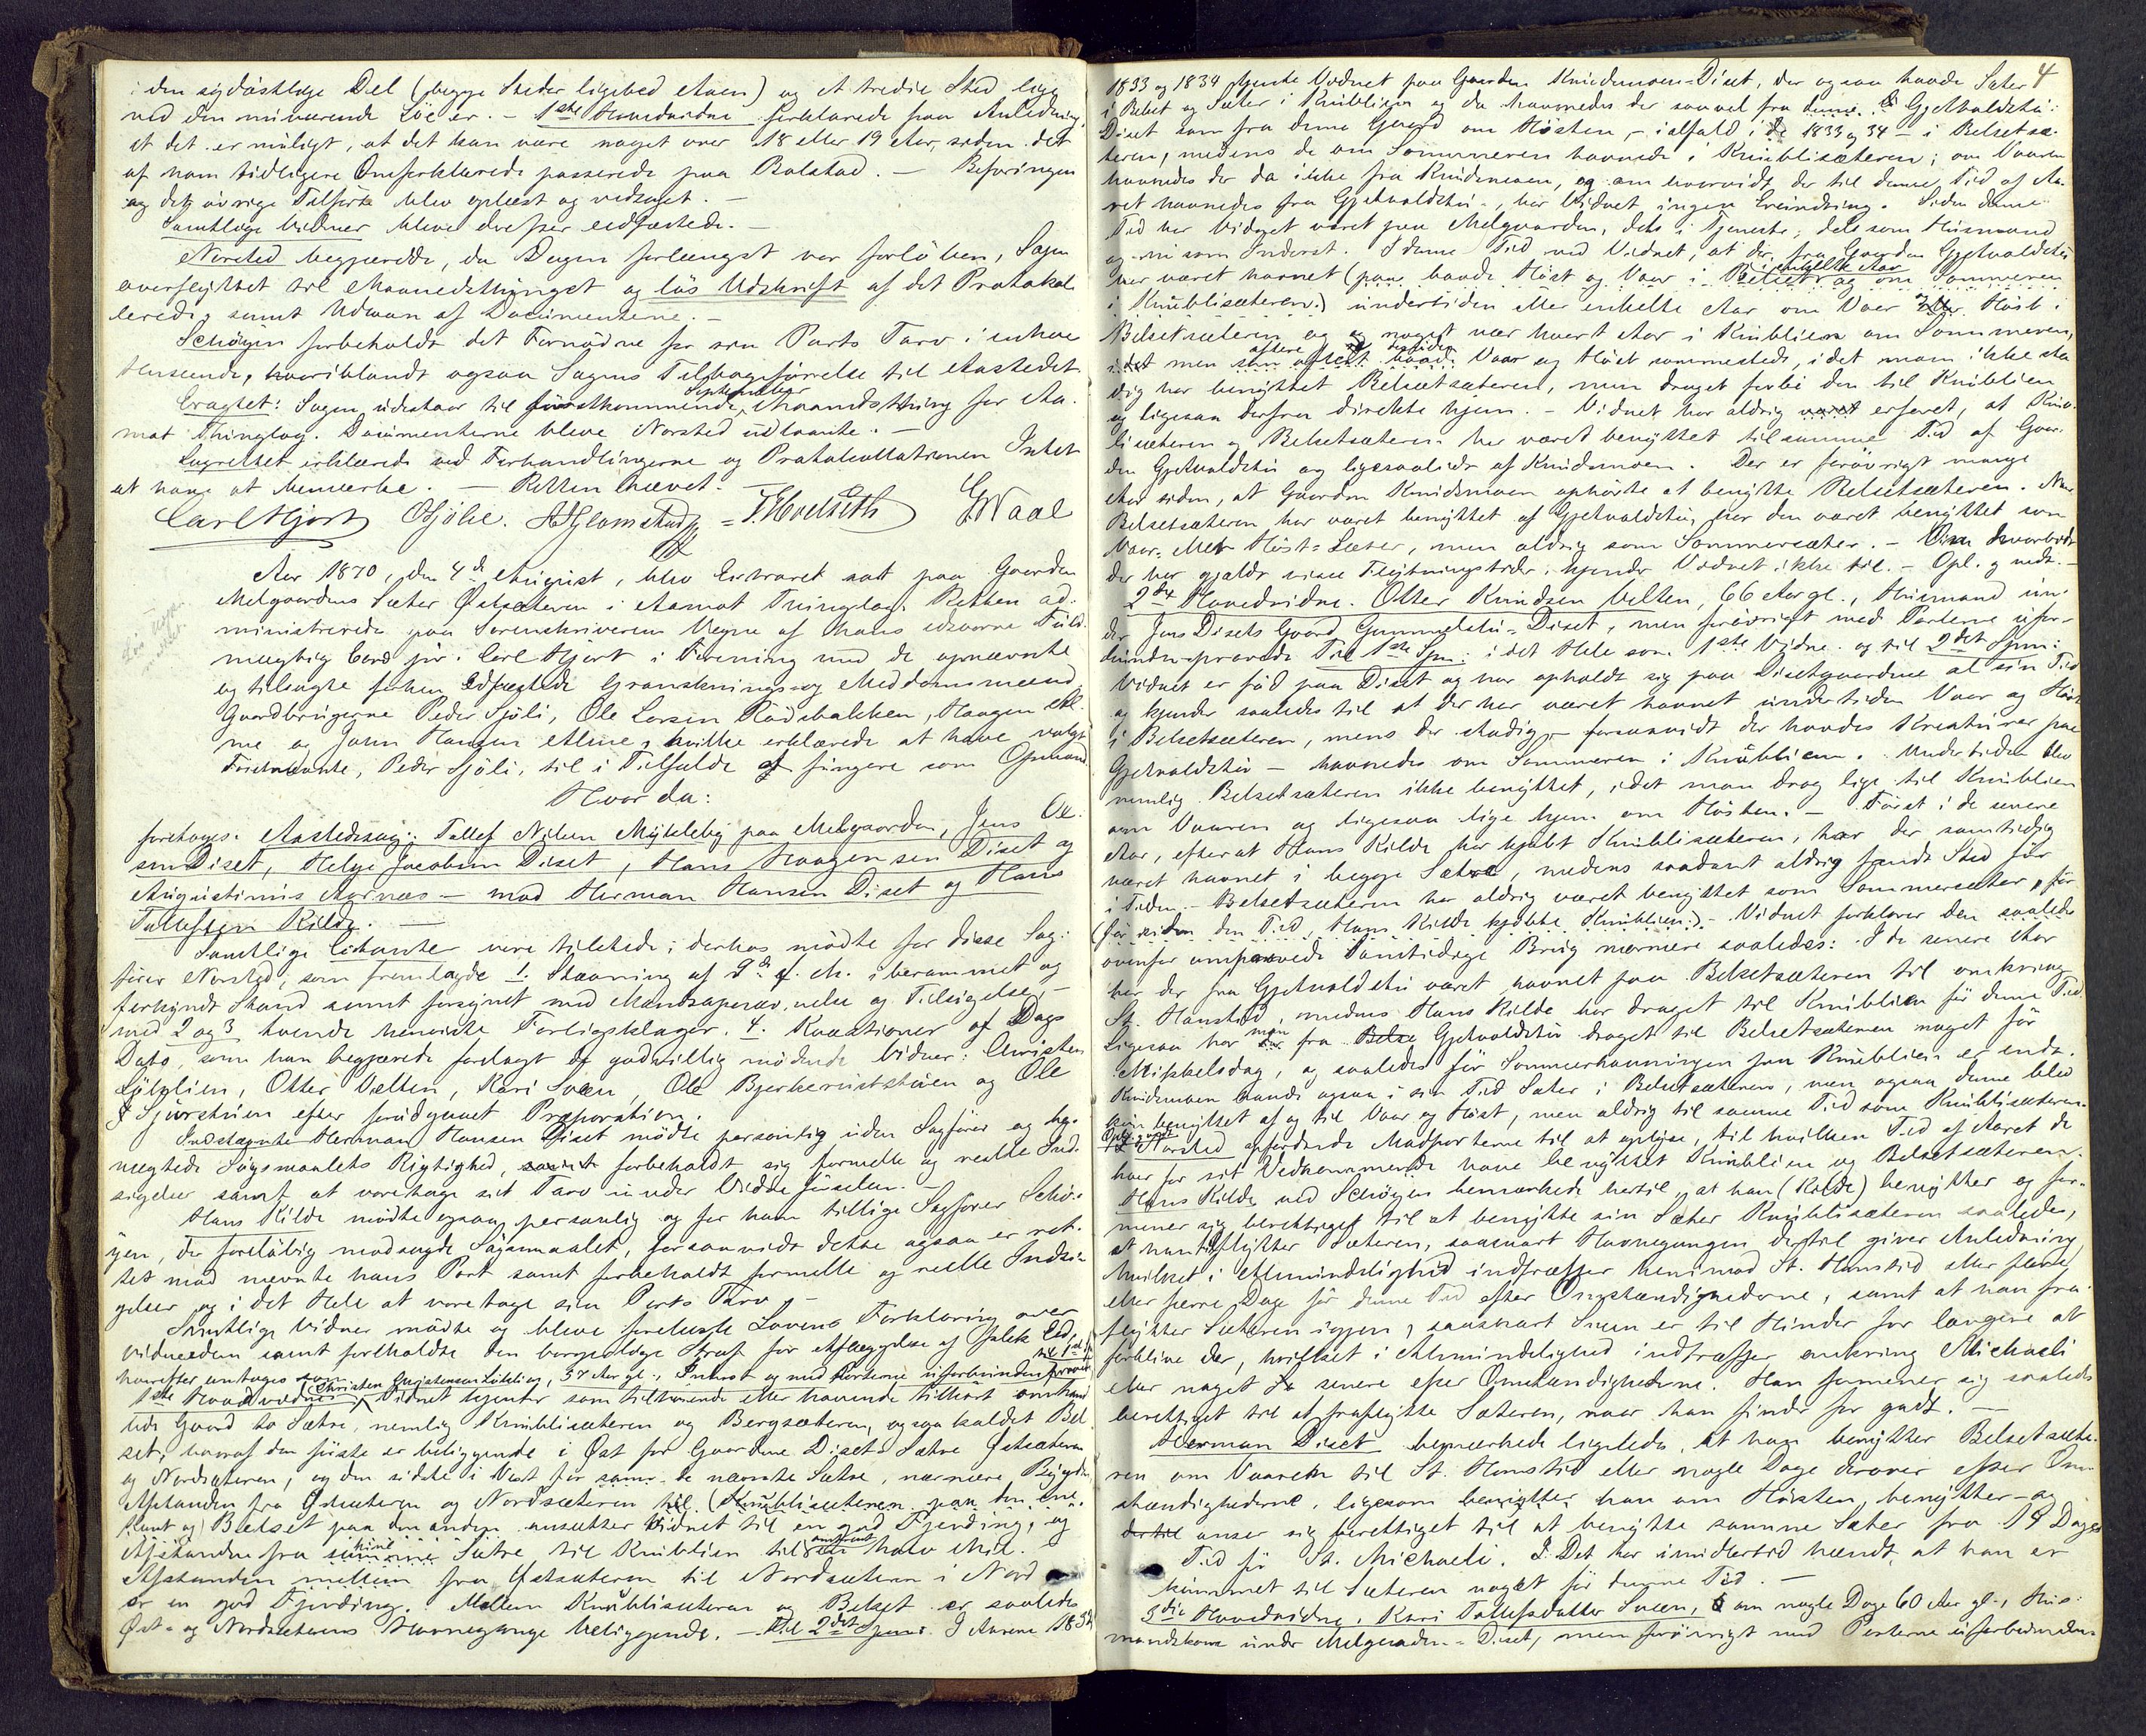 i den sydöstlige Del (begge Steder ligeved Aaen) og et tredie Sted lige
ved den nuværende Löe er. - 1ste Hovedvidne forklarede paa Anledning
at det er muligt, at det kan være noget over 18 eller 19 Aar, siden det
af ham tidligere Omforklarede passerede paa Bolstad. - Befaringen
og det övrige Tilförte blev oplæst og vedtaget. -
Samtlige Vidner bleve derefter eedfæstede. -
Norsted begjærede, da Dagen forlængst var forlöben, Sagen
overflyttet til Maanedsthinget og lös Udskrift af det Protokol-
lerede samt Udlaan af Documenterne. -
Schöyen forbeholdt det Fornödne for sin Parts Tarv i enhver
Henseende, hvoriblandt ogsaa Sagens Tilbageförelse til Aastedet
Eragtet: Sagen udestaar til förstkommende September Maanedsthing for Aa-
mot Thinglag. Documenterne bleve Norsted udlaante. -
Lagrettet erklærede ved Forhandlingerne og Protokollationen Intet
at have at bemærke. - Retten hævet. -
Carl Hjort OSjölie. AHGlomstad = T. Hvelseth GWaal
Aar 1870, den 4de August, blev Extraret sat paa Gaarden
Melgaardens Sæter Östsæteren i Aamot Thinglag. Retten ad-
ministreredes paa Sorenskriverens Vegne af hans edsvorne Fuld-
mægtig Cand jur. Carl Hjort i Forening med de opnævnte
og tilsagte forhen Edfæstede Granskning- og Meddomsmænd
Gaardbrugerne Peder Sjöli, Ole Larsen Rödsbakken, Haagen Al-
me og John Hansen Alme, hvilke erklærede at have valgt
Förstnævnte, Peder Sjöli, til i Tilfælde at fungere som Opmand
Hvor da:
foretoges: Aastedssag: Tollef Nilsen Myklebÿ paa Melgaarden, Jens Ol-
sen Diset, Helge Jacobsen Diset, Hans Haagensen Diset og
Augustinus Aarnæs - mod Herman Hansen Diset og Hans
Tollefsen Kilde. -
Samtlige Citanter vare tilstede; derhos mödte for disse Sag-
förer Norsted, som fremlagde 1. Stævning af 9de f. M. i berammet og
forkyndt Stand samt forsynet med Mandsopnævnelse og Tilsigelse, -
med 2 og 3 tvende henviste Forligsklager. 4. Qvæstioner af Dags
Dato, som han begjærede forelagt de godvillig mödende Vidner: Christen
Löblien, Otter Velten, Kari Sveen, Ole Bjerkerudstuen og Ole
Sjurstuen efter foridgaaet Præparation.
Indstævnte Herman Hansen Diset mödte personlig uden Sagförer og be-
nægtede Sögsmaalets Rigtighed, samt forbeholdt sig formelle og reelle Ind-
sigelser samt at varetage sit Tarv under Vidneförselen. -
Hans Kilde mödte ogsaa personlig og for ham tillige Sagförer Schö-
yen, der foreløbig modsagde Sögsmaalet, forsaavidt dette ogsaa er ret-
tet mod nævnte hans Part samt forbeholdt formelle og reelle Indsi-
gelser og i det Hele at varetage sin Parts Tarv. -
Samtlige Vidner mödte og bleve forelæste Lovens Forklaring over
Vidneeden samt foreholdte den borgerlige Straf for Aflæggelse af falsk Eed,
hvorefter antoges som
1ste Hovedvidne, Christen Christensen Löblien, 57 Aar gl., Inderst og med Parterne uforbunden, svarer til 1ste: Vidnet kjender som tilhörende eller havende tilhört omhand-
lede Gaard to Sætre, nemlig Knublisæteren og Bergsæteren, ogsaa kaldet Bel-
set, hvoraf den förste er beliggende i Öst for Gaardene Disets Sætre Östsæteren
og Nordsæteren, og den sidste i Vest for samme nævnte Sætre, nærmere
Afstanden fra Östsæteren og Nordsæteren til (Knublisæteren paa den ene
Kant og) Belset paa den anden ansætter Vidnet til en god Fjerding, og
Afstanden fra hine Sætre til Knublien til omtrent halv Mil.
Afstanden mellem fra Östsæteren til Nordsæteren i Nord
er en god Fjerding. Mellem Knublisæteren og Belset er saaledes
Öst- og Nordsæterens Havnegange beliggende. - Til 2det Spm. I Aarene 1832
4
1833 og 1834 tjente Vidnet paa Gaarden Knudsmoen-Diset, der ogsaa havde Sæter
i Belset og Sæter i Knublien og da havnedes der saavel fra denne, til Gjetvoldstu-
Diset som fra denne Gaard om Hösten, - ialfald i de 1833 og 34 - i Belsetsæ-
teren, medens de om Sommeren havnede i Knublisæteren; om Vaaren
havnedes der da ikke fra Knudsmoen, og om hvorvidt der til denne Tid af Aa-
ret havnedes fra Gjetvoldstu-, har Vidnet ingen Erindring. Siden denne
Tid har Vidnet været paa Melgaarden, dels i Tjeneste, dels som Husmand
og - nu som Inderst. I denne Tid ved Vidnet, at der fra Gaarden Gjetvoldstu
har været havnet (paa baade Höst og Vaar i Belset og enkelte Aar om Sommeren
i Knublisæteren) undertiden eller enkelte Aar om Vaar og Höst i
Belsetsæteren og noget nær hvert Aar i Knublien om Sommeren,
idet men oftere Vaar og Höst sammesteds, idet man ikke sta-
dig har benyttet Belsetsæteren, men draget forbi den til Knublien
og ligesaa derfra direkte hjem. - Vidnet har aldrig erfaret, at Knub-
lisæteren og Belsetsæteren har været benyttet tilsamme Tid af Gaar-
den Gjetvoldstu og ligesaaledes af Knudsmoen. Der er foröovrigt mange
Aar siden, at Gaarden Knudsmoen ophörte at benytte Belsetsæteren. Naar
Belsetsæteren har været benyttet af Gjetvoldstu, har den været benyttet som
Vaar- eller Höst-Sæter, men aldrig som Sommersæter. - Om hvorvidt
der har gjældt visse Flytningstider, kjender Vidnet ikke til. - Opl. og vedt. -
2det Hovedvidne. Otter Knudsen Velten, 66 Aar gl., Husmand un-
der Jens Disets Gaard Gammelstu-Diset, men foröovrigt med Parterne ufor-
bunden, svarede Til 1ste Spm. i det Hele som 1ste Vidne og til 2det Spm:
Vidnet er föd paa Diset og har opholdt sig paa Disetgaardene al sin Tid
og kjender saaledes til at der har været havnet undertiden Vaar og Höst
i Belsetsæteren, mens der stadig - forsaavidt der havdes Kreaturer paa
Gjetvoldstu - havnedes om Sommeren i Knublien. Undertiden blev
nemlig Belsetsæteren ikke benyttet, idet man drog lige til Knublien
om Vaaren og ligesaa lige hjem om Hösten. - Först i de senere
Aar, efterat Hans Kilde har kjöbt Knublisæteren, har der samtidig
været havnet i begge Sætre, medens saadant aldrig fandt Sted för
i Tiden. - Belsetsæteren har aldrig været benyttet som Sommersæter, för
(för siden den Tid, Hans Kilde kjöbte Knublien). - Vidnet forklarer den saaledes
ovenfor omprovede samtidige Brug nærmere saaledes: I de senere Aar
har der fra Gjetvoldstu været havnet paa Belsetsæteren til omkring
St. Hanstid, medens Hans Kilde har draget til Knublien för denne Tid.
Ligesaa har man fra Gjetvoldstu draget til Belsetsæteren noget för
Mikkelsdag, og saaledes för Sommerhavningen paa Knublien er endt.
Knudsmoen havde ogsaa i sin Tid Sæter i Belsetsæteren, men ogsaa denne blev
kun benyttet af og til Vaar og Höst, men aldrig til samme Tid som Knublisæteren.
Norsted opfordrede Modparterne til at oplyse, til hvilken Tid af Aaret de
hver for sit Vedkommende have benyttet Knublien og Belsetsæteren.
Hans Kilde ved Schöyen bemærkede hertil, at han (Kilde) benytter og for-
mener sig berettiget til at benytte sin Sæter Knublisæteren saaledes,
at han tilflytter Sæteren, saasnart Havnegangen dertil giver Anledning,
hvilket i Almindelighed indtræffer henimod St. Hanstid eller flere
eller færre Dage för denne Tid efter Omstændighederne, samt at han fra-
flytter Sæteren igjen, saasnart Sneen er til Hinder for længere at
forblive der, hvilket i Almindelighed indtræffer omkring Michaeli
eller noget senere efter Omstændighederne. Han formener sig saaledes
berettiget til at fraflytte Sæteren, naar han finder for godt. -
Herman Diset bemærkede ligeledes, at han benytter Belsetsæte-
ren om Vaaren til St. Hanstid eller nogle Dage derover efter Om-
stændighederne, ligesom han om Hösten benytter - og
anser sig berettiget til at benytte samme Sæter fra 14 Dages
Tid för St. Michaeli. Det har imidlertid hændt, at han er
kommet til Sæteren noget för denne Tid. -
3die Hovedvidne, Kari Tollefsdatter Sveen, om nogle Dage 60 Aar gl., Hus-
mandskone under Melgaarden-Diset, men foröovrigt med Parterne uforbunden